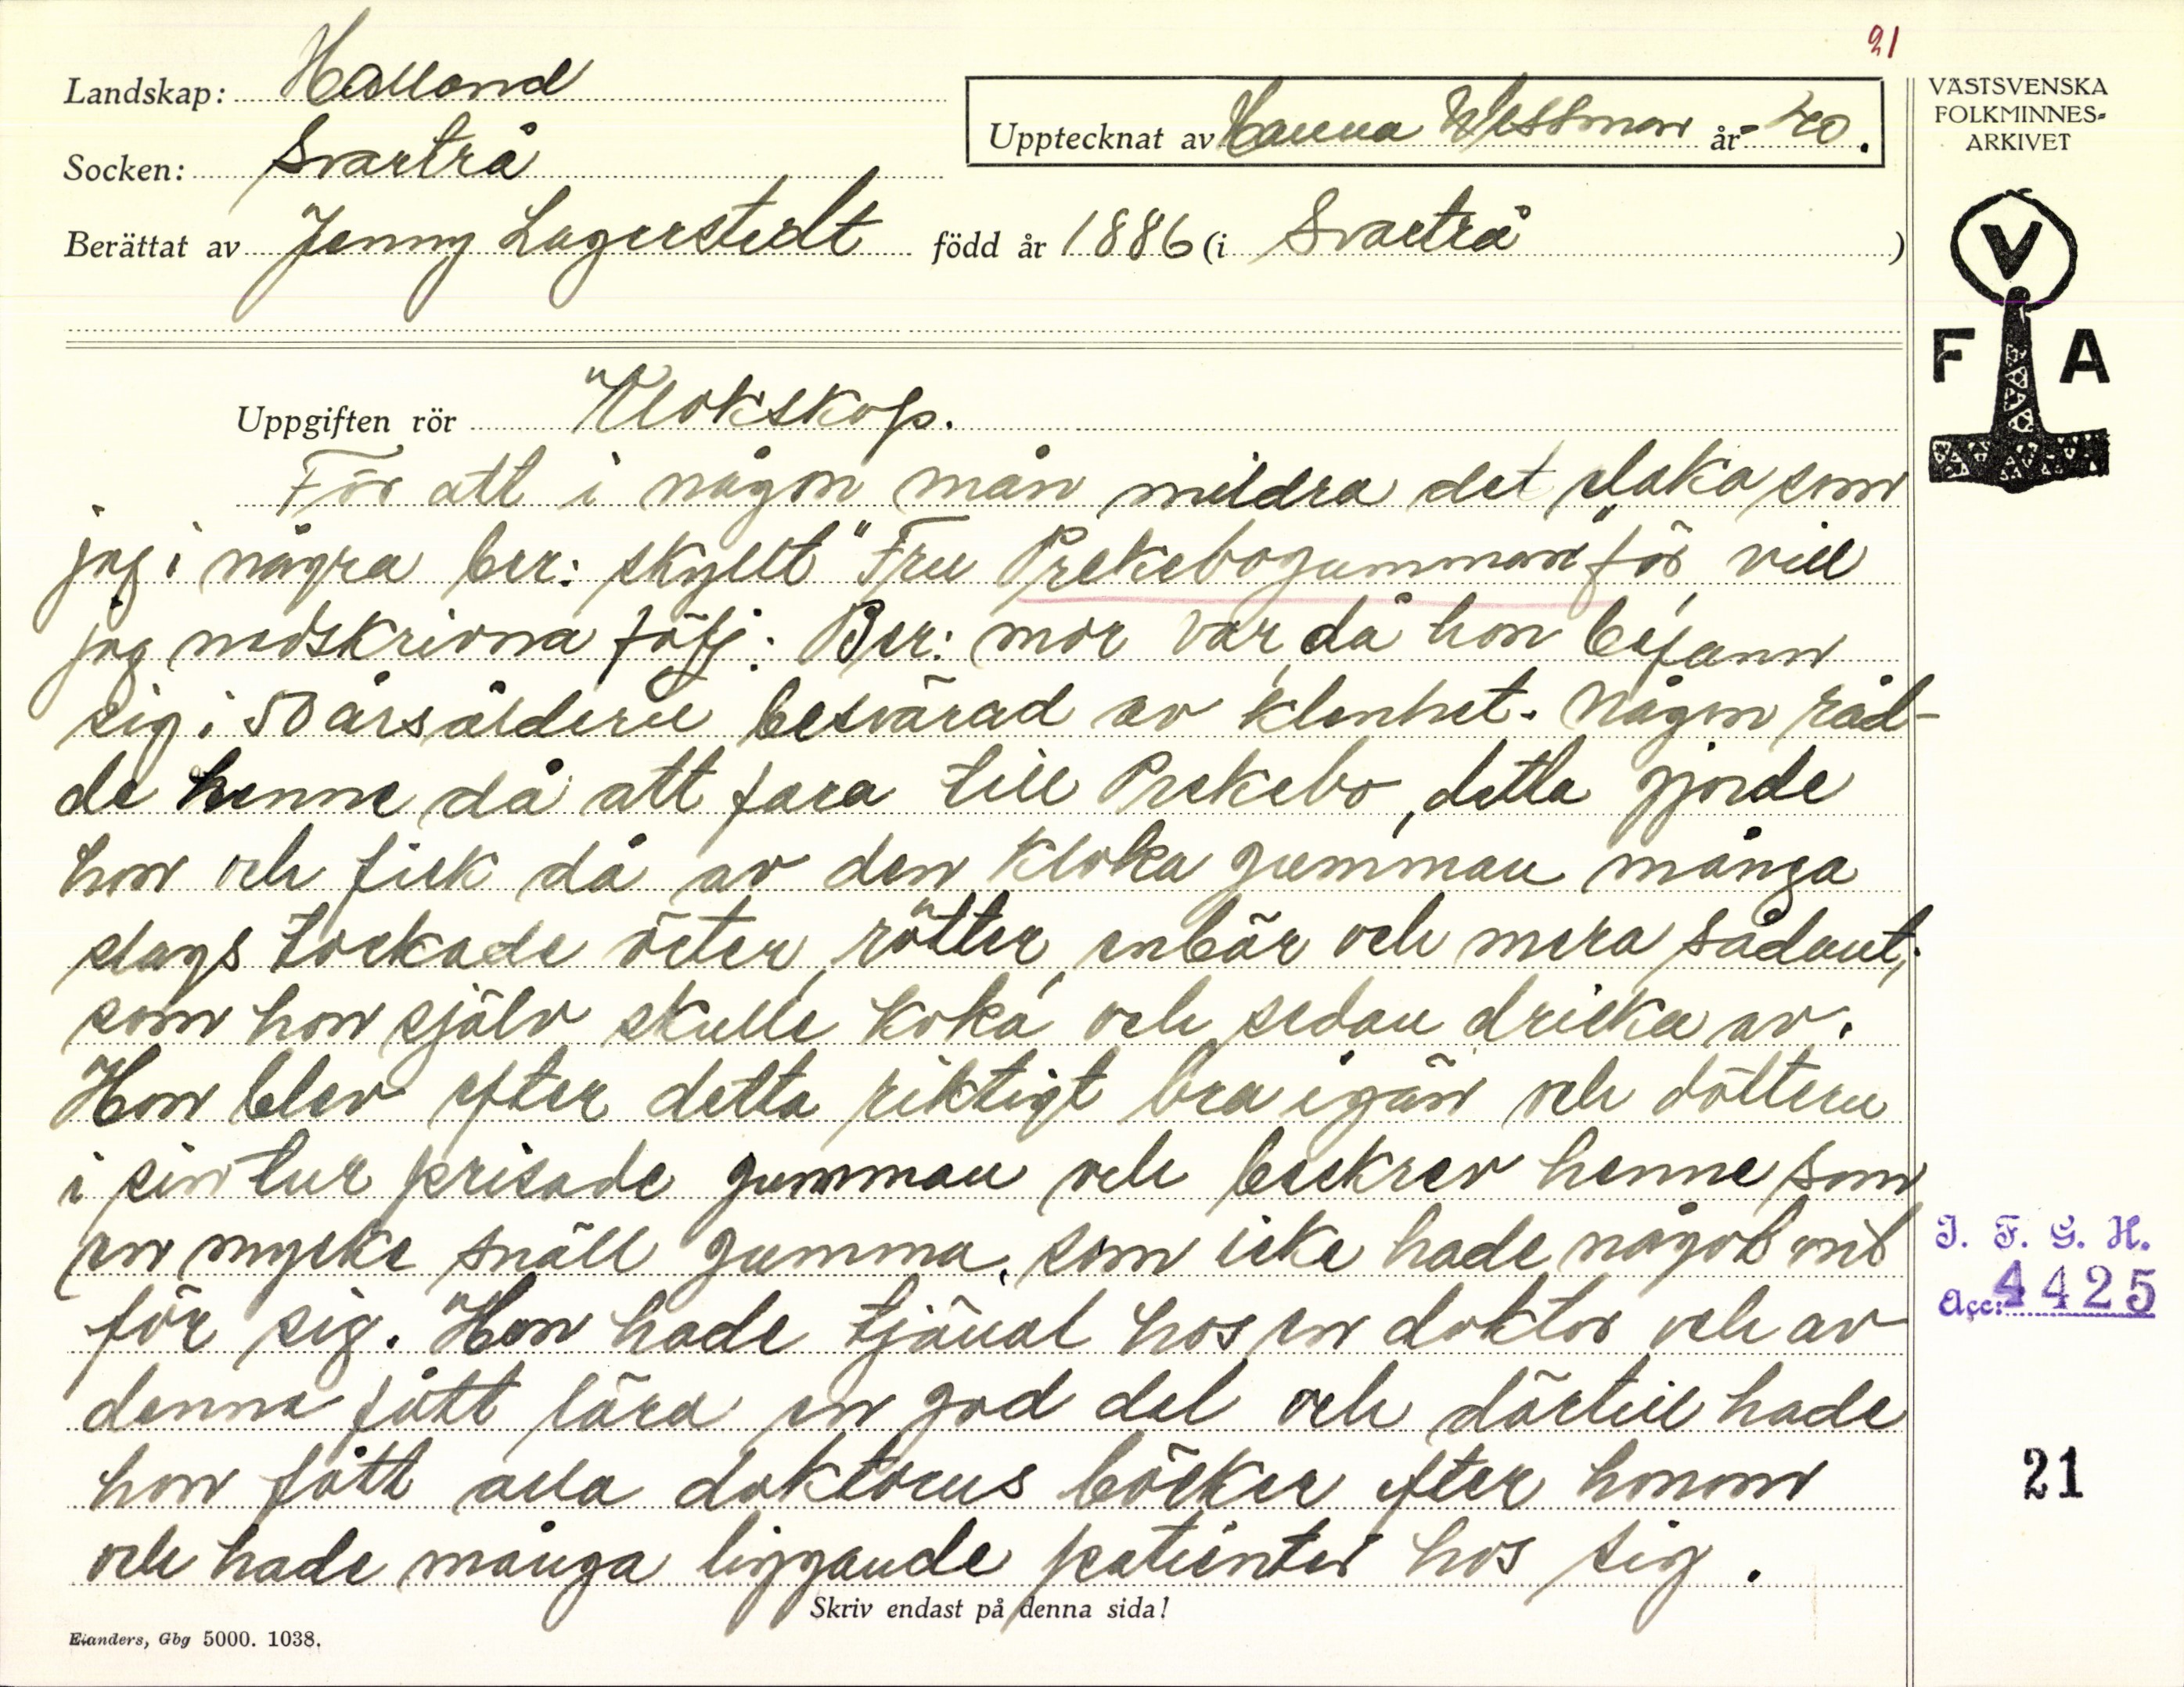 21
Landskap: Halland
Upptecknat av Hanna Wessman år -40.
Socken: Svartrå
Berättat av Jenny Lagerstedt född år 1886 (i Svartrå )
VÄSTSVENSKA
FOLKMINNES-
ARKIVET
V
F A
Uppgiften rör "Klokskap.
För att i någon mån mildra det elaka som
jag i några ber: skyllt "Fru Prekebogumman" för, vill
jag nedskrivna följ: Ber: mor var då hon befann
sig i 50 årsåldern besvärad av klenhet. Någon råd-
de henne då att fara till Prekebo, detta gjorde
hon och fick då av den kloka gumman många
slags torkade örter, rötter, enbär och mera sådant,
som hon själv skulle koka och sedan dricka av.
Hon blev efter detta riktigt bra igän och dottern
i sin tur prisade gumman och beskrev henne som
en mycke snäll gumma, som icke hade något ont
för sig. Hon hade tjänat hos en doktor och av
denne fått lära en god del och därtill hade
hon fått alla doktorns böcker efter honom
och hade många liggande patienter hos sig.
I. F. G. H.
Acc: 4425
21
Skriv endast på denna sida!
Elanders, Gbg 5000. 1038.